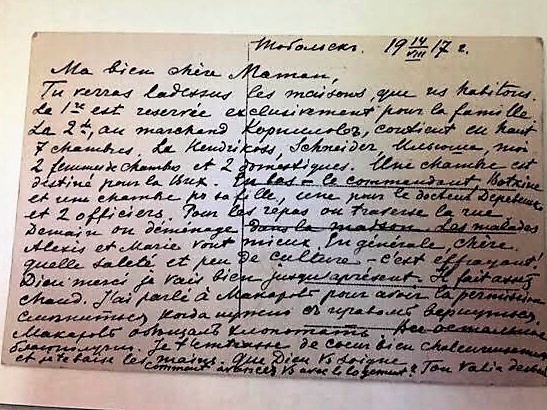 Тобольскъ. 19 14/VIII 17 г.
Ma bien chère Maman,
Tu verras ladessus les maisons, que ns habitons.
La 1re est reservée exclusivement pour la famille
La 2de, au marchand Корниловъ, contient en haut
7 chambres. La Hendrikoff, Schneider, Ильюша, moi
2 femmes de chambre et 2 domestiques. Une chambre est
destiné pour la Bux. En bas – le commandant, Botkine
et une chambre pr sa fille, une pour le docteur Derevenko
et 2 officiers. Pour les repas on traverse la rue
Demain on déménage dans la maison. Les malades
Alexis et Marie vont mieux. En générale, chère
quelle saleté et peu de culture – c'est effrayant!
Dieu merci je vais bien jusqu'aprésent. Il fait assez
chaud. J'ai parlé à Макаровъ pour avoir la permission
когда съ
Макаровъ Все остальное
благополучно. Je t'embrasse de coeur bien chaleureusement
et je te baise les mains. Que Dieu vs soigne
comment avancez vs avec le logement? Ton Valia